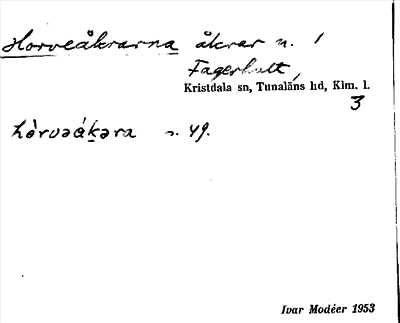 Horveåkrarna åkrar n. 1
Fagerhult,
Kristdala sn, Tunaläns hd, Klm. l.
3
hòrvəákəra n. 49.
Ivar Modéer 1953